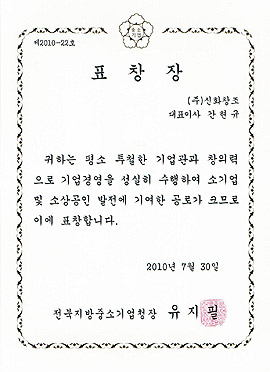 제2010-22호
표창장
(주)신화창조
대표이사 간현규
귀하는 평소 투철한 기업관과 창의력
으로 기업경영을 성실히 수행하여 소기업
및 소상공인 발전에 기여한 공로가 크므로
이에 표창합니다.
2010년 7월 30일
전북지방중소기업청장 유지필